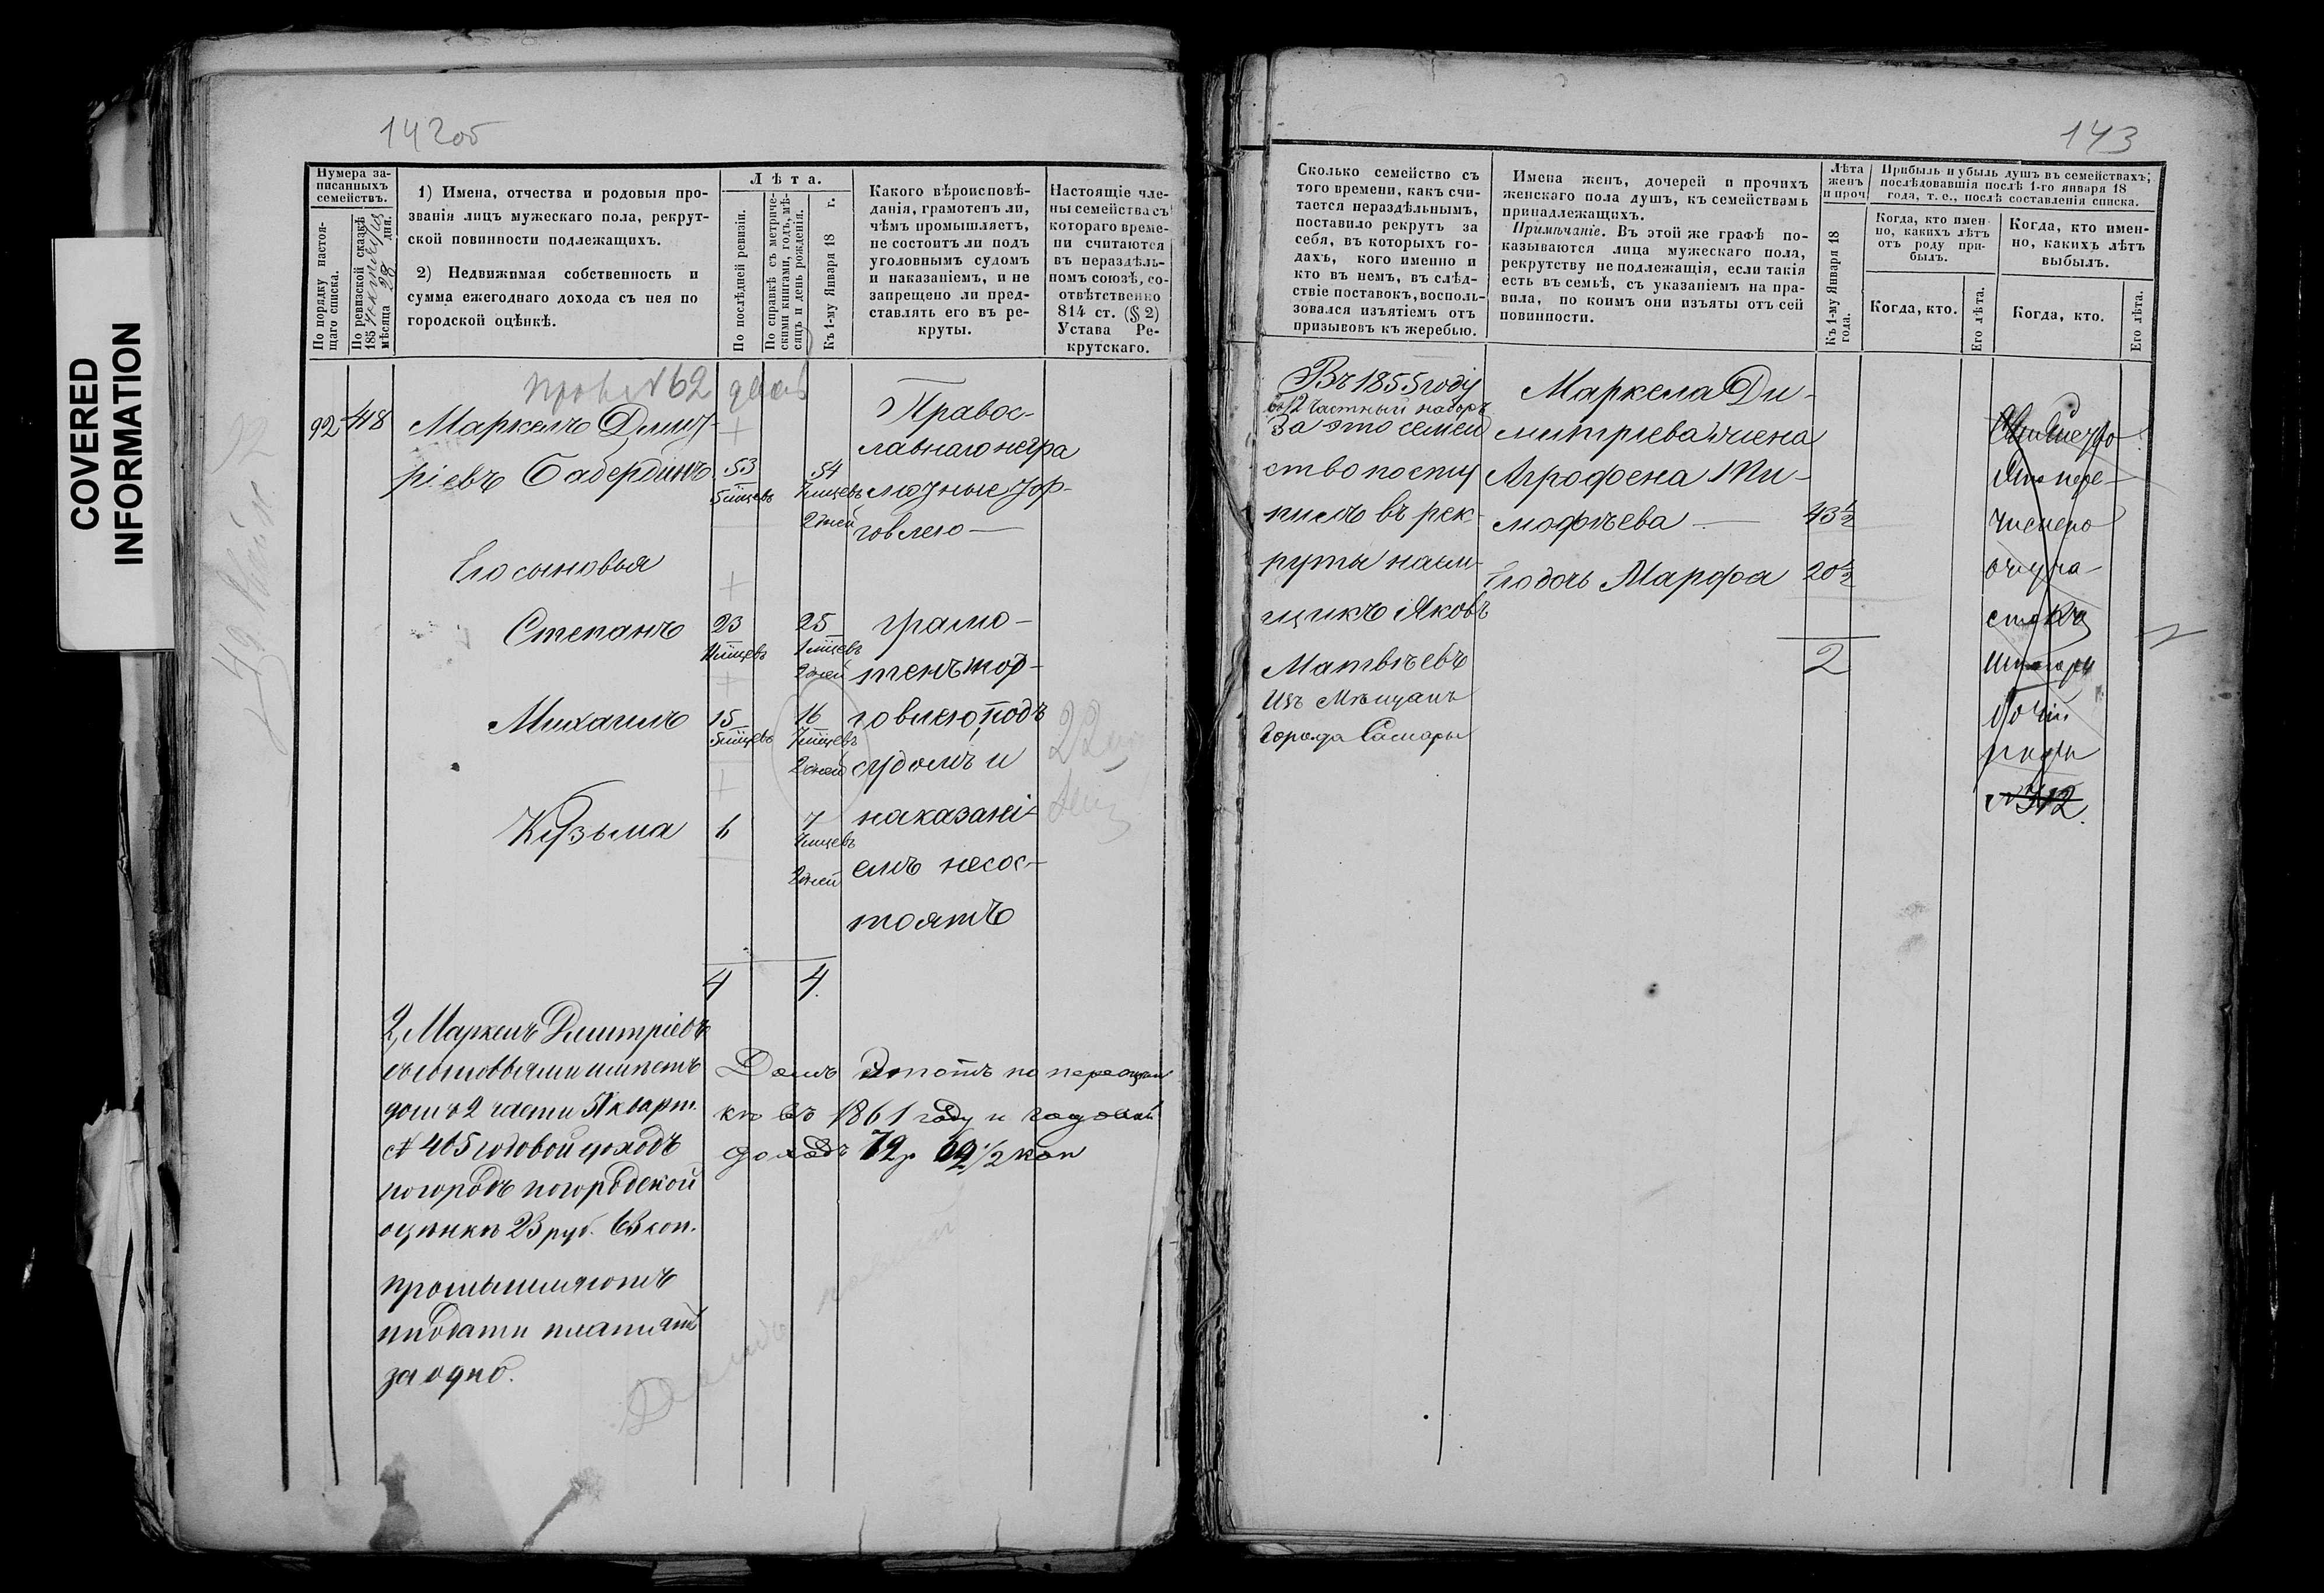 COVERED
INFORMATION
142об
Нумера за-
писанныхъ
семействъ.
По порядку настоя-
щаго списка.
По ревизской сказкѣ
185
мѣсяца 28 дня.
1) Имена, отчества и родовыя про-
званія лицъ мужескаго пола, рекрут-
ской повинности подлежащихъ.
2) Недвижимая собственность и
сумма ежегоднаго дохода съ нея по
городской оцѣнкѣ.
Лѣта.
По послѣдней ревизіи.
По справкѣ съ метриче-
скими книгами, годъ, мѣ-
сяцъ и день рожденія.
Къ 1-му Января 18 г.
Какого вѣроисповѣ-
данія, грамотенъ ли,
чѣмъ промышляетъ,
не состоитъ ли подъ
уголовнымъ судомъ
и наказаніемъ, и не
запрещено ли пред-
ставлять его въ ре-
круты.
Настоящіе чле-
ны семейства съ
котораго време-
ни считаются
въ нераздѣль-
номъ союзѣ, со-
отвѣтственно
814 ст. (§ 2)
Устава Ре-
крутскаго.
№ 62
92 418 Маркелъ Дмит-
ріевъ Бабердинъ 53 54
5 мцевъ 7 мцевъ
2 дней
Егосыновья
Степанъ 23 25
1 мцевъ
2 дней
Михаилъ 15 16
5 мцевъ 7 мцевъ
2 дней
Кузьма 6 7
мцевъ
2 дней
4 4
Правос-
лавнаго негра
мотные тор-
говлею
грамо-
тенъ тор-
говлею, подъ
судомъ и
наказані-
емъ несос-
тоятъ
22
2, Маркелъ Дмитріевъ
съ сыновьями имѣетъ
домъ 2 части 51 кварт.
№ 405 годовой доходъ
погородъ погородской
оцѣнкѣ 23 руб. 63 коп.
промышляютъ
и подати платятъ
за одно.
Домъ этотъ по переоцѣн
кѣ въ 1861 году и годовой
доходъ 72р 62 1/2 коп
143
Сколько семейство съ
того времени, какъ счи-
тается нераздѣльнымъ,
поставило рекрутъ за
себя, въ которыхъ го-
дахъ, кого именно и
кто въ немъ, въ слѣд-
ствіе поставокъ, восполь-
зовался изъятіемъ отъ
призывовъ къ жеребью.
Имена женъ, дочерей и прочихъ
женскаго пола душъ, къ семействамъ
принадлежащихъ.
Примѣчаніе. Въ этой же графѣ по-
казываются лица мужескаго пола,
рекрутству не подлежащія, если такія
есть въ семьѣ, съ указаніемъ на пра-
вила, по коимъ они изъяты отъ сей
повинности.
Лѣта
женъ
и проч
Къ 1-му Января 18
года.
Прибыль и убыль душъ въ семействахъ,
послѣдовавшія послѣ 1-го января 18
года, т. е., послѣ составленія списка.
Когда, кто имен-
но, какихъ лѣтъ
отъ роду при-
былъ.
Когда, кто имен-
но, какихъ лѣтъ
выбылъ.
Когда, кто.
Его лѣта.
Когда, кто.
Его лѣта.
Въ 1855 году
въ 12 частный наборъ
За это семей
ство посту
пилъ въ рек-
руты наем-
щикъ Яковъ
Матвѣевъ
изъ Мѣщанъ
города Самары
Маркела Ди-
митріева жена
Агрофена Ти-
мофѣева 43 1/2
Егодочь Марфа 20 1/2
2
пере-
числено
№ 312